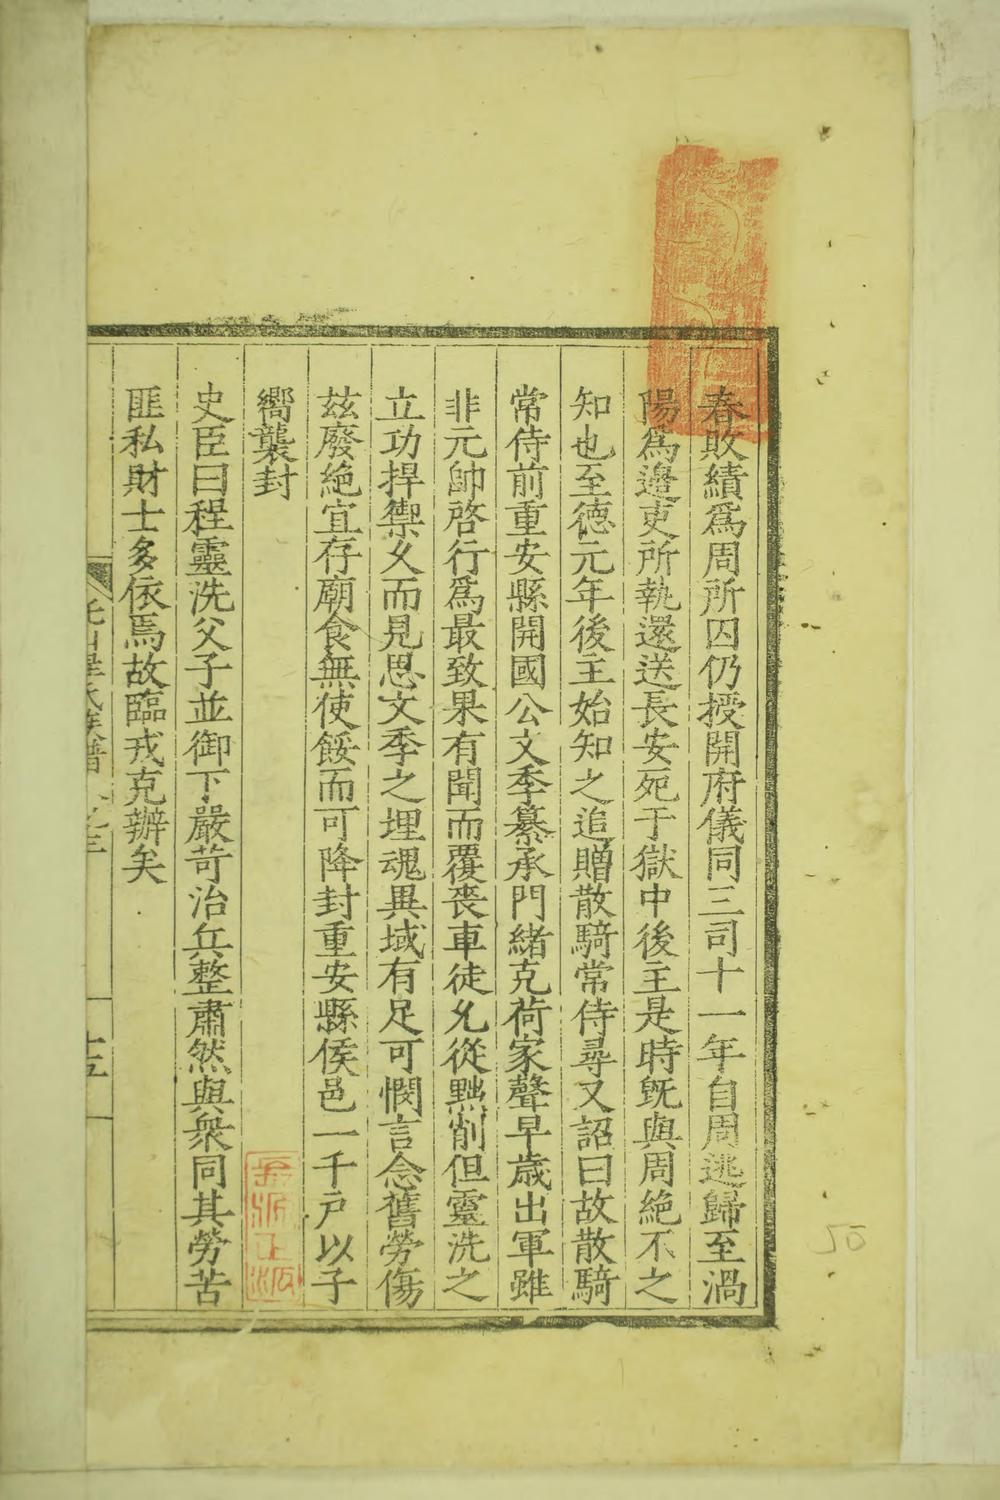 春敗績爲周所囚仍授開府儀同三司十一年自周逃歸至渦
陽爲邊吏所執還送長安死于獄中後主是時旣與周絶不之
知也至德元年後主始知之追贈散騎常侍尋又詔曰故散騎
常侍前重安縣開國公文季纂承門緒克荷家聲早歲出軍雖
非元帥啓行爲最致果有聞而覆喪車徒允從黜削但靈洗之
立功捍禦久而見思文季之埋魂異域有足可憫言念舊勞傷
玆廢絶宜存廟食無使餒而可降封重安縣侯邑一千戶以子
嚮襲封
史臣曰程靈洗父子並御下嚴苛治兵整肅然與衆同其勞苦
匪私財士多依焉故臨戎克辦矣
十五
50